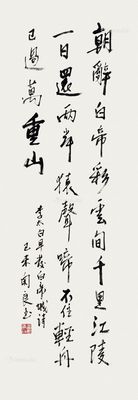 朝辭白帝彩雲間千里江陵
一日還兩岸猿聲啼不住輕舟
已過萬重山
李太白早發白帝城詩
己未關良書